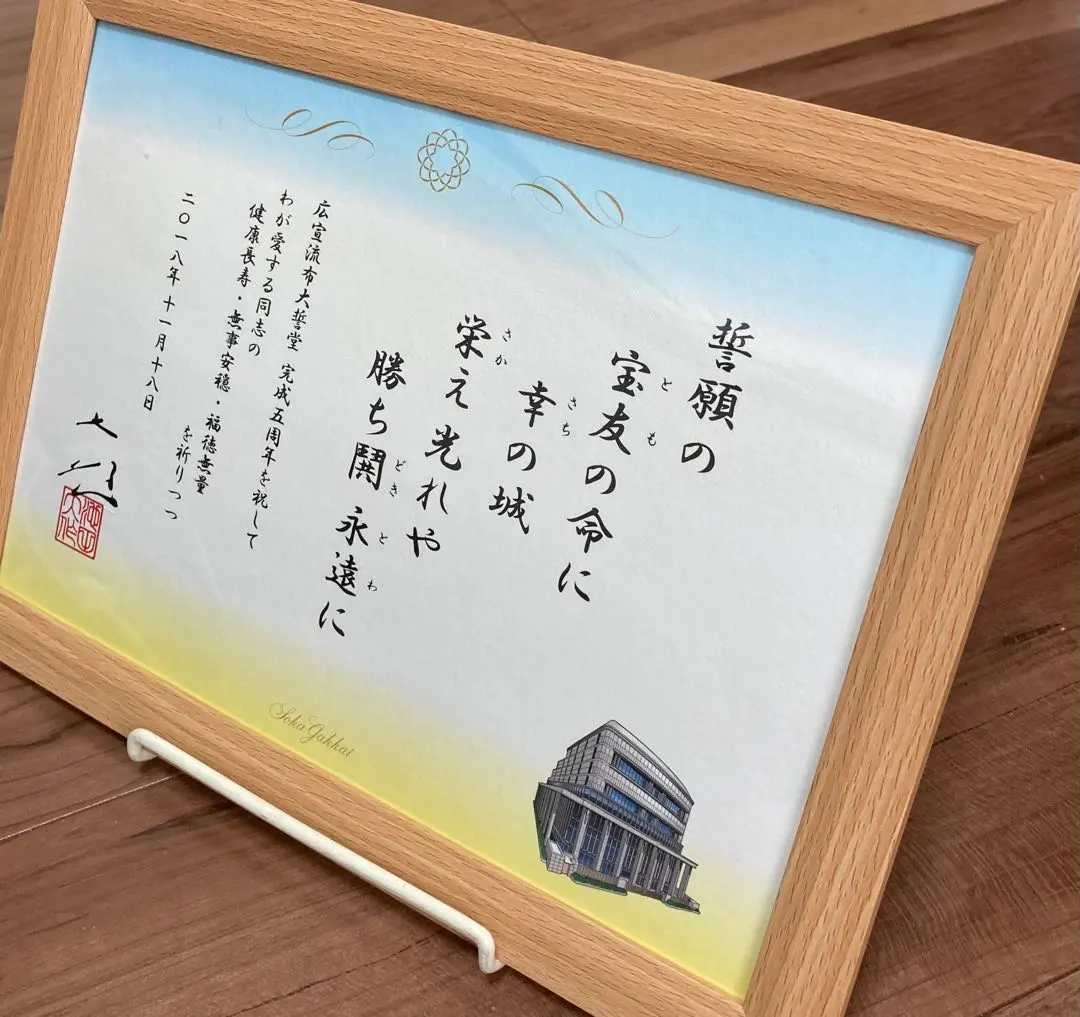 誓願の
宝友の命に
とも
幸の城
さち
栄え光れや
さか
勝ち鬨 永遠に
どき とわ
広宣流布大誓堂 完成五周年を祝して
わが愛する同志の
健康長寿・無事安穏・福徳無量
を祈りつつ
二〇一八年十一月十八日
Soka Gakkai